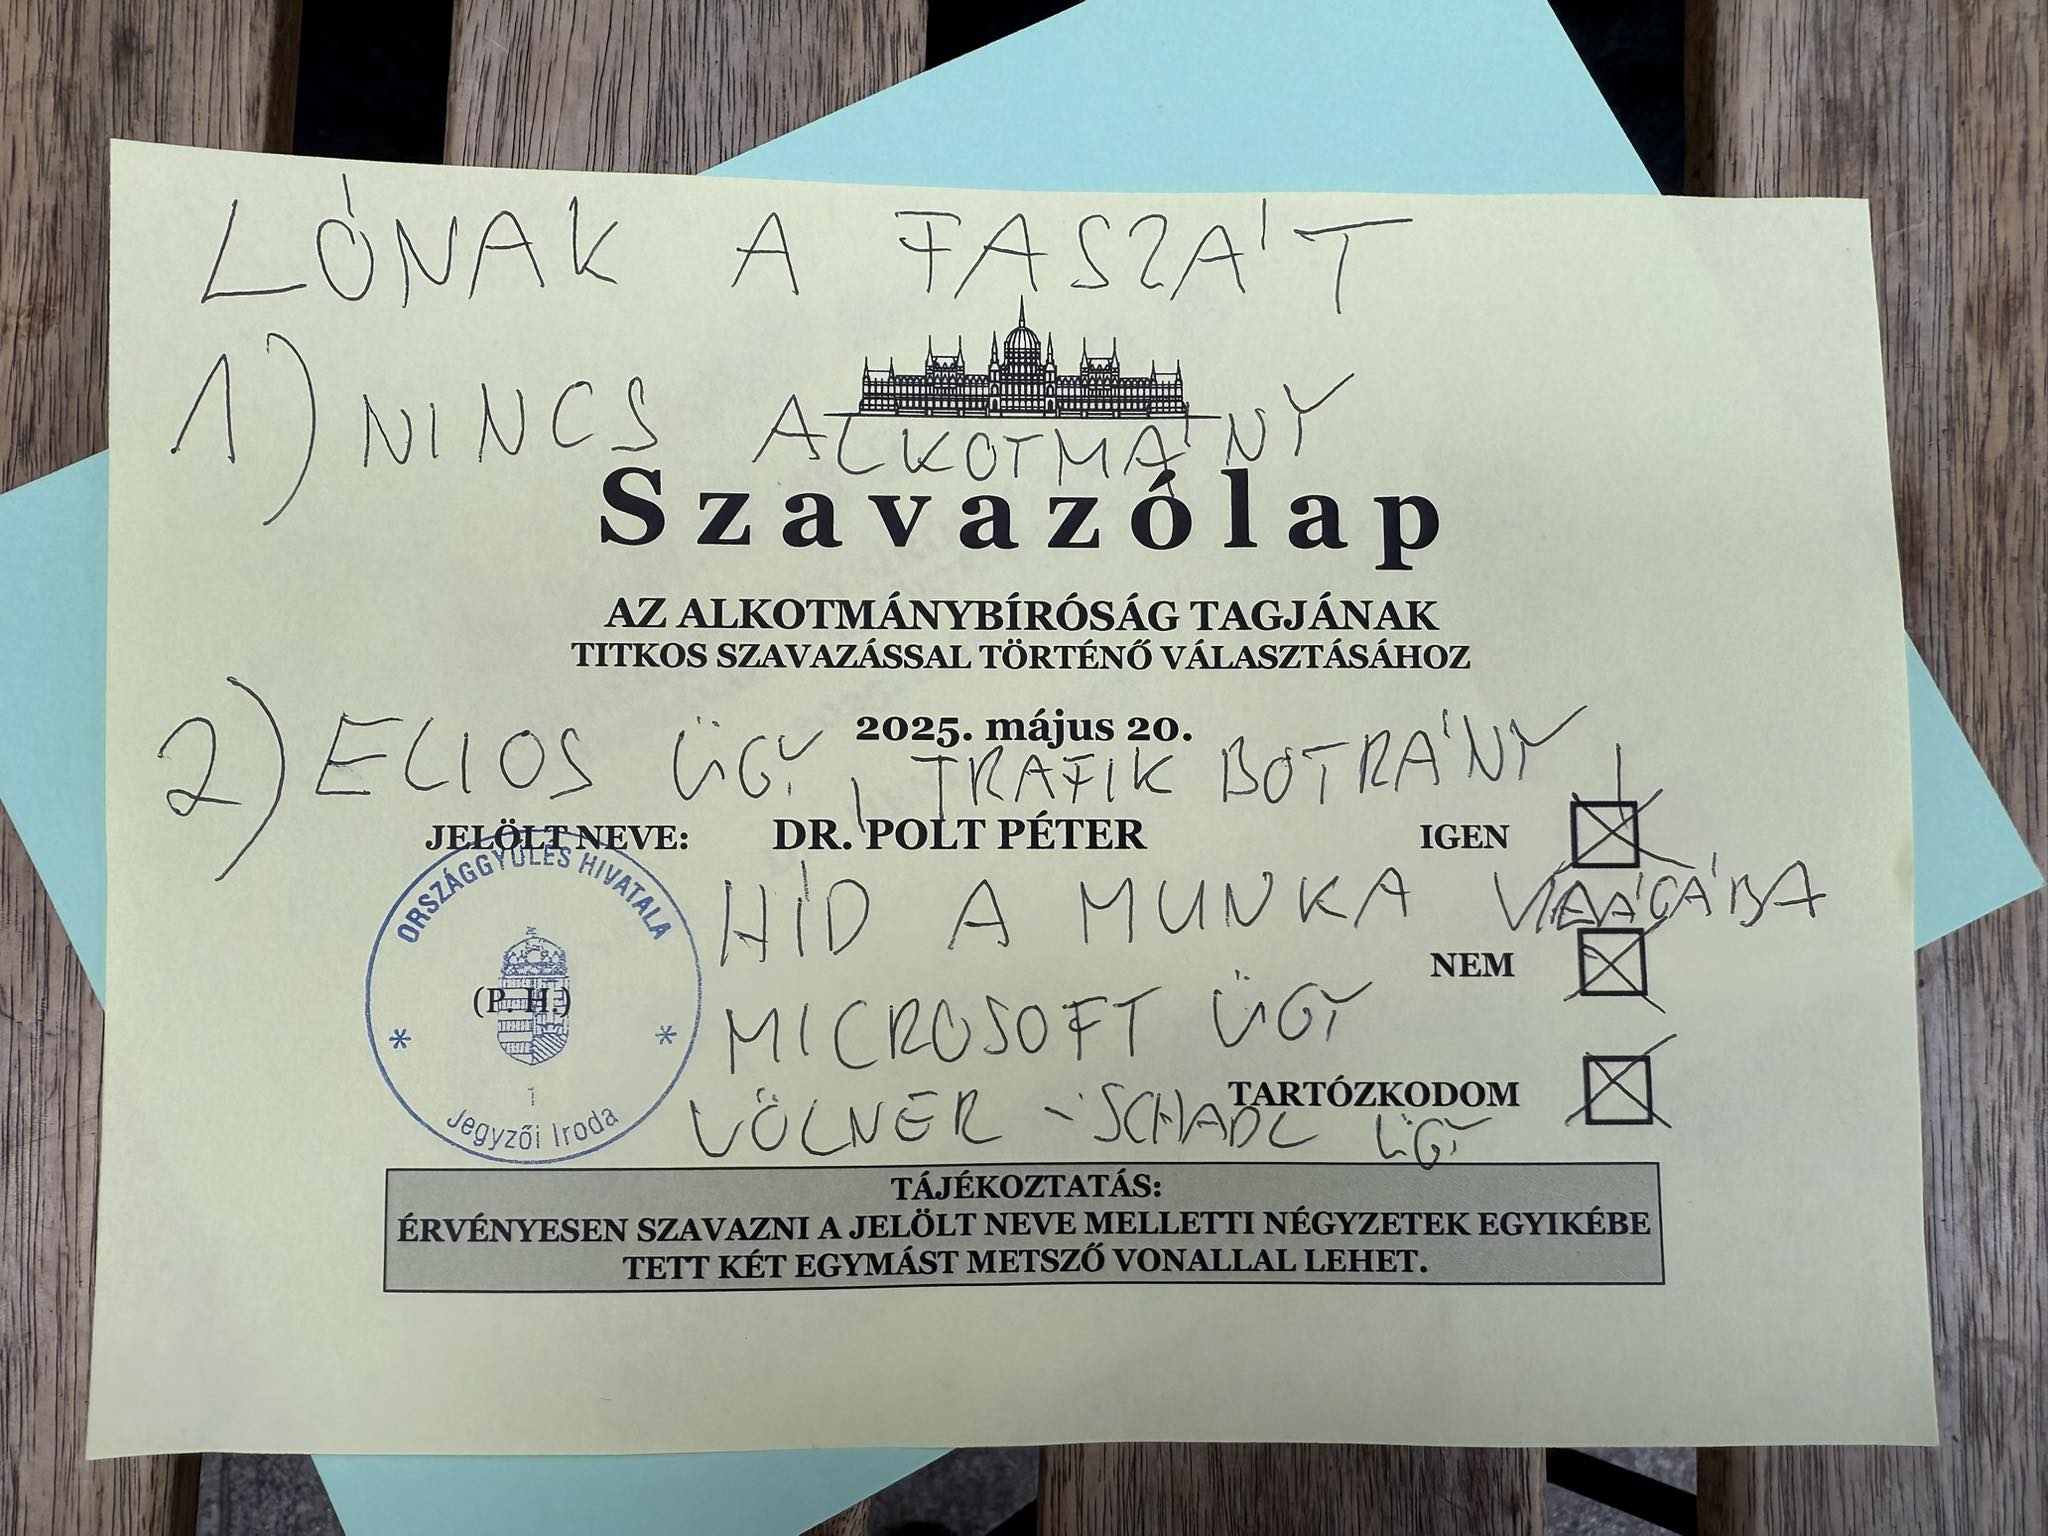 LÓNAK A FASZÁT
1) NINCS ALKOTMÁNY
Szavazólap
AZ ALKOTMÁNYBÍRÓSÁG TAGJÁNAK
TITKOS SZAVAZÁSSAL TÖRTÉNŐ VÁLASZTÁSÁHOZ
2025. május 20.
2) ELIOS ÜGY, TRAFIK BOTRÁNY
JELÖLT NEVE: DR. POLT PÉTER IGEN
HÍD A MUNKA
NEM
MICROSOFT ÜGY
TARTÓZKODOM
VÖLNER - SCHADL ÜGY
ORSZÁGGYŰLÉS HIVATALA
(P. H.)
1
* *
Jegyzői Iroda
TÁJÉKOZTATÁS:
ÉRVÉNYESEN SZAVAZNI A JELÖLT NEVE MELLETTI NÉGYZETEK EGYIKÉBE
TETT KÉT EGYMÁST METSZŐ VONALLAL LEHET.